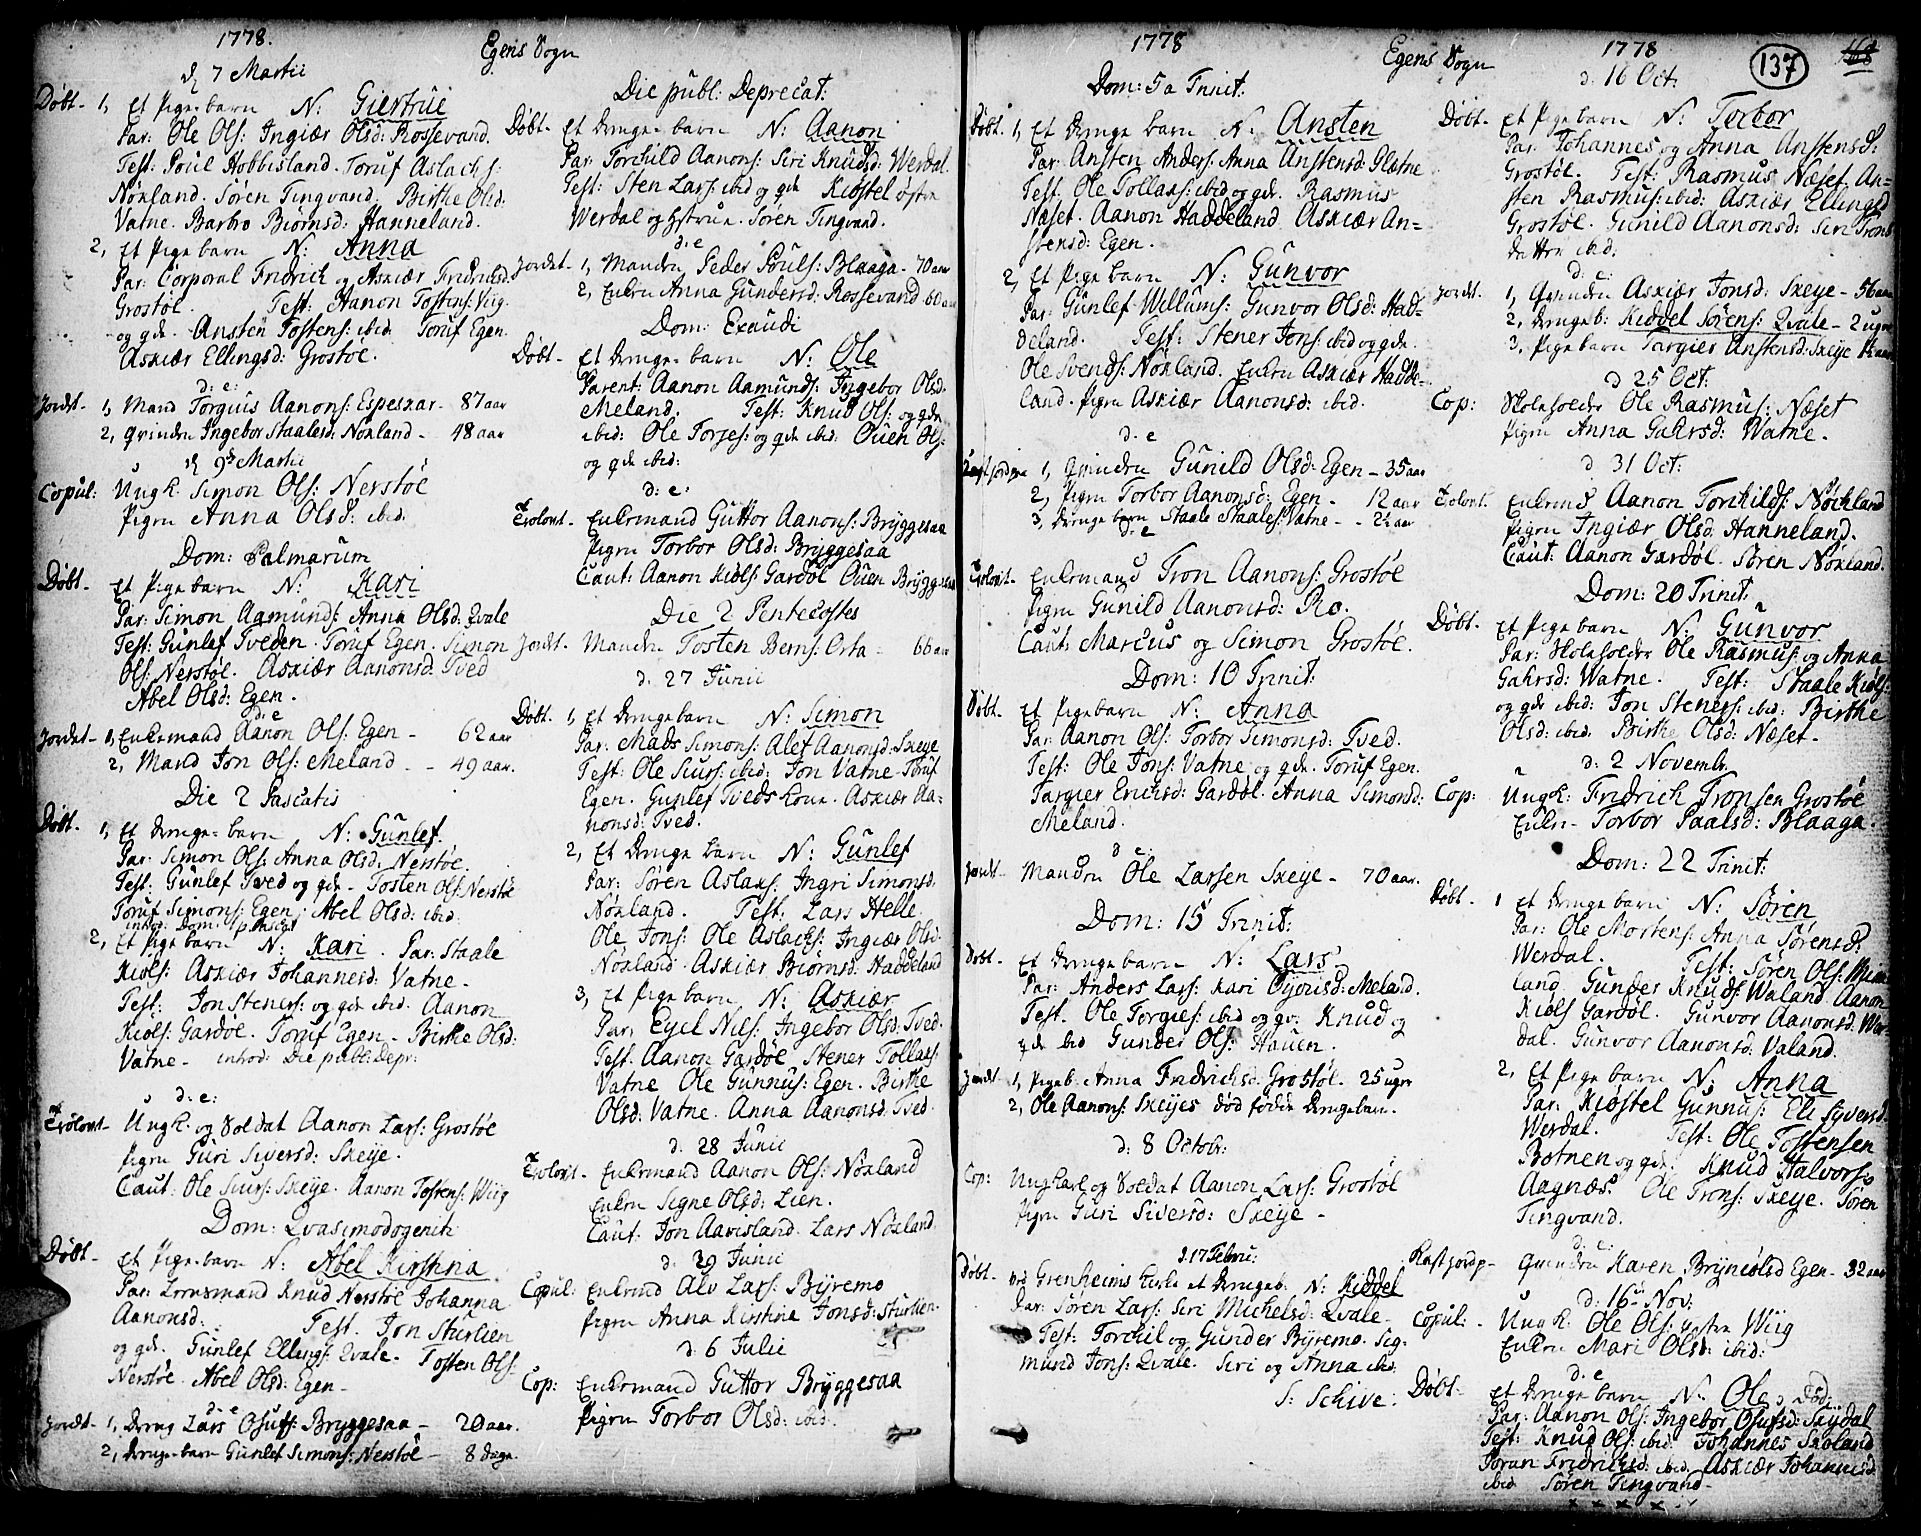 1778. Egens Sogn
d 7 Martii
Døbt. 1, Et Pige-barn N: Giertrue
Par: Ole Ols: Ingiær Olsd: Rossevand.
Test: Poul Hobbisland. Toruf Aslachs:
Nøxland. Søren Tingvand. Birthe Olsd:
Vatne. Barbro Biørnsd: Hanneland.
2, Et Pige barn N: Anna
Par: Corporal Fridrich og Askiær Fridrichsd:
Grostøl. Test: Aanon Tostens: Viig.
og gde. Ansten Tostens: ibid. Toruf Egen.
Askiær Ellingsd: Grostøl.
d: e:
Jordet- 1, Mand Torguis Aanons: Espeskar- 87 aar
2, Qvinden Ingebor Staalesd: Nøxland- 48 aar
d 9de Martii
Copul: Ungk. Simon Ols: Nerstøl
Pigen Anna Olsd: ibid.
Dom: Palmarum
Døbt. Et Pige barn N: Kari
Par: Simon Aamunds: Anna Olsd: Qvale
Test: Gunlef Tveden. Toruf Egen. Simon
Ols: Nerstøl. Askiær Aanonsd: Tved
Abel Olsd: Egen.
d: e
Jordet- 1, Enkemand Aanon Ols: Egen- 62 aar
2, Mand Jon Ols: Meland - - 49 aar.
Die 2 Pascatis
Døbt. 1, Et Drenge-barn N: Gunlef.
Par: Simon Ols: Anna Olsd: Nerstøl.
Test: Gunlef Tved og gde- Tosten Ols: Nerstøl
Toruf Simons: Egen. Abel Olsd: ibid:
introd: Dom: p. Pasch:
2, Et Pige barn N: Kari. Par: Staale
Kiøls: Askiær Johannesd: Vatne-
Test: Jon Steners: og gde ibid. Aanon
Kiøls: Gardøl. Toruf Egen- Birthe Olsd:
Vatne- introd: Die publ: Depr:
d: e:
Trolovt- Ungk. og Soldat Aanon Lars: Grostøl
Pigen Guri Siversd: Skeye.
Caut: Ole Siurs: Skeye. Aanon Tostens: Wiig
Dom: Qvasimodogenit:
Døbt- Et Pige-barn N: Abel Kirstina.
Par: Lensmand Knud Nerstøl Johanna
Aanonsd: Test. Jon Sturlien
og gde. Gunlef Ellings: Qvale- Tosten Ols:
Nerstøl. Abel Olsd: Egen-
d: e
Jordt- 1, Dreng Lars Osufs: Bryggesaa- 20 aar.
2, Drenge-barn Gunlef Simons: Nerstøl- 8 dage.
Die publ: Deprecat:
Døbt. Et Drenge-barn N: Aanon
Par: Torchild Aanons: Siri Knudsd: Werdal
Test: Sten Lars: ibid og gde Kiøstel østre
Werdal og hstrue. Søren Tingvand.
d: e
Jordet- 1, Manden Peder Pouls: Blaaga- 70 aar
2, Enken Anna Gundersd: Rossevand 60 aar
Dom: Exaudi
Døbt- Et Drenge-barn N: Ole
Parent: Aanon Aamunds: Ingebor Olsd:
Meland. Test: Knud Ols: og gde
ibid: Ole Torjes: og gde ibid: Ouen Ols:
og gde ibid:
d: e:
Trolovt- Enkemand Guttor Aanons: Bryggesaa
Pigen Torbor Olsd: Bryggesaa
Caut: Aanon Kiøls: Gardøl Ouen Bryggesaa
Die 2 Pentecostes
Jordt. Manden Tosten Berns: Orta - 66 aar
d: 27 Junii
Døbt. 1, Et Drenge barn N: Simon
Par: Mads Simons: Alet Aanonsd: Skeye
Test: Ole Siurs: ibid: Jon Vatne-Toruf
Egen. Gunlef Tveds kone. Askiær Aa-
nonsd: Tved.
2, Et Drenge barn N: Gunlef
Par: Søren Aslaxs: Ingri Simonsd:
Nøxland. Test: Lars Helle
Ole Jons: Ole Aslachs: Ingiær Olsd:
Nøxland. Askiær Biørnsd: Haddeland
3, Et Pige barn N: Askiær
Par: Eyel Nils: Ingebor Olsd: Tved.
Test: Aanon Gardøl. Stener Tollaxs:
Vatne Ole Gunnus: Egen. Birthe
Olsd: Vatne. Anna Aanonsd: Tved.
d. 28 Junii
Trolovt. Enkemand Aanon Ols: Nøxland
Enken Signe Olsd: Lien.
Caut: Jon Aavisland. Lars Nøxland.
d. 29 Junii
Copul: Enkemd Alv Lars: Byremo
Pigen Anna Kirstine Jonsd: Sturlien.
d. 6 Julii
Cop: Enkemand Guttor Bryggesaa
Pigen Torbor Olsd: ibid.
1778 Egens Sogn 1778 137
Dom: 5a Trinit:
Døbt. 1, Et Drenge barn N: Ansten
Par: Ansten Anders: Anna Anstensd: Flatne
Test. Ole Tollaxs: ibid og gde. Rasmus
Næset. Aanon Haddeland. Askiær An-
stensd: Egen.
2, Et Pige barn N: Gunvor
Par: Gunlef Willums: Gunvor Olsd: Had-
deland. Test: Stener Jons: ibid og gde.
Ole Svends: Nøxland. Enken Askiær Hadde-
land. Pigen Askiær Aanonsd: ibid.
d. e
1, Qvinden Gunild Olsd: Egen- 35 aar
2, Pigen Torbor Aanonsd: Egen- 12 aar
3, Drenge barn Staale Staales: Vatne- - 2½ aar
d: e
Trolovt- Enkemand Tron Aanons: Grostøl
Pigen Gunild Aanonsd: Ro.
Caut: Marcus og Simon Grostøl.
Dom: 10 Trinit:
Døbt. Et Pige barn N: Anna
Par: Aanon Ols: Torbor Simonsd: Tved.
Test: Ole Jons: Vatne og gde. Toruf Egen.
Targier Erichsd: Gardøl. Anna Simonsd:
Meland.
d e:
Jordt- Manden Ole Larsen Skeye- 70 aar.
Dom: 15 Trinit:
Døbt- Et Drenge barn N: Lars
Par: Anders Lars: Kari Oyousd: Meland.
Test. Ole Torgies: ibid og gde: Knud og
gde ibid Gunder Ols: Hauen.
Jordt- 1, Pigeb: Anna Fridrichsd: Grostøl. 25 uger
2, Ole Aanons: Skeyes død fødde Drengebarn.
d: 8 Octobr:
Cop: Ungkarl og Soldat Aanon Lars: Grostøl
Pigen Guri Siversd: Skeye-
d 17 Febru:
Døbt- ved Grenheims Kirke et Drengeb: N: Kiddel
Par: Søren Lars: Siri Michelsd: Qvale-
Test: Torchil og Gunder Byremo. Sig-
mund Jons: Qvale. Siri og Anna ibid.
S: Schive:
d: 16 Oct:
Døbt- Et Pige barn N: Torbor
Par: Johannes og Anna Anstensd:
Grostøl. Test: Rasmus Næset. An-
sten Rasmus: ibid: Askiær Ellingsd
Grostøl. Gunild Aanonsd: Siri Trons
datter ibid.
d: e:
Jordt. 1, Qvinden Askiær Jonsd: Skeye- 56 aar
2, Drengeb: Kiddel Sørens: Qvale- 2 uger
3, Pige barn Targier Anstensd: Skeye
d 25 Oct:
Cop: Skoleholder Ole Rasmus: Næset
Pigen Anna Gahrsd: Watne.
d 31 Oct:
Trolovt. Enkemd Aanon Torchilds: Nøchland
Pigen Ingiær Olsd: Hanneland.
Caut: Aanon Gardøl. Søren Nøxland.
Dom: 20 Trinit:
Døbt. Et Pige barn N: Gunvor
Par: Skoleholder Ole Rasmus: og Anna
Gahrsd: Watne. Test: Staale Kiøls:
og gde ibid: Jon Steners: ibid: Birthe
Olsd: ibid. Birthe Olsd: Næset-
d: 2 Novembr.
Cop: Ungk: Fridrich Tronsen Grostøl
Enken- Torbor Paalsd: Blaaga.
Dom: 22 Trinit:
Døbt- 1 Et Drenge barn N: Søren
Par: Ole Mortens: Anna Sørensd:
Werdal. Test: Søren Ols:
land. Gunder Knuds: Waland. Aanon
Kiøls Gardøl. Gunvor Aanonsd: Wer-
dal. Gunvor Aanonsd: Valand.
2, Et Pige barn N: Anna
Par: Kiøstel Gunnus: Eli Syversd
Werdal. Test: Ole Tostensen
Botnen og gde. Knud Halvors:
Aagnæs. Ole Trons: Skeye. Søren
Tingvand.
d: e:
Qvinden Karen Bryniolsd Egen- 32 aar
d: 16 Nov:
Copul:- Ungk. Ole Ols: ystre Wiig
Enken Mari Olsd: ibid:
d: e
Døbt- Et Drenge barn N: Ole
Par: Aanon Ols: Ingebor Osufsd: Skydal
Test: Knud Ols: ibid. Johannes Skoland
Joran Fridrichsd: ibid. Askiær Johannesd:
ibid Søren Tingvand-